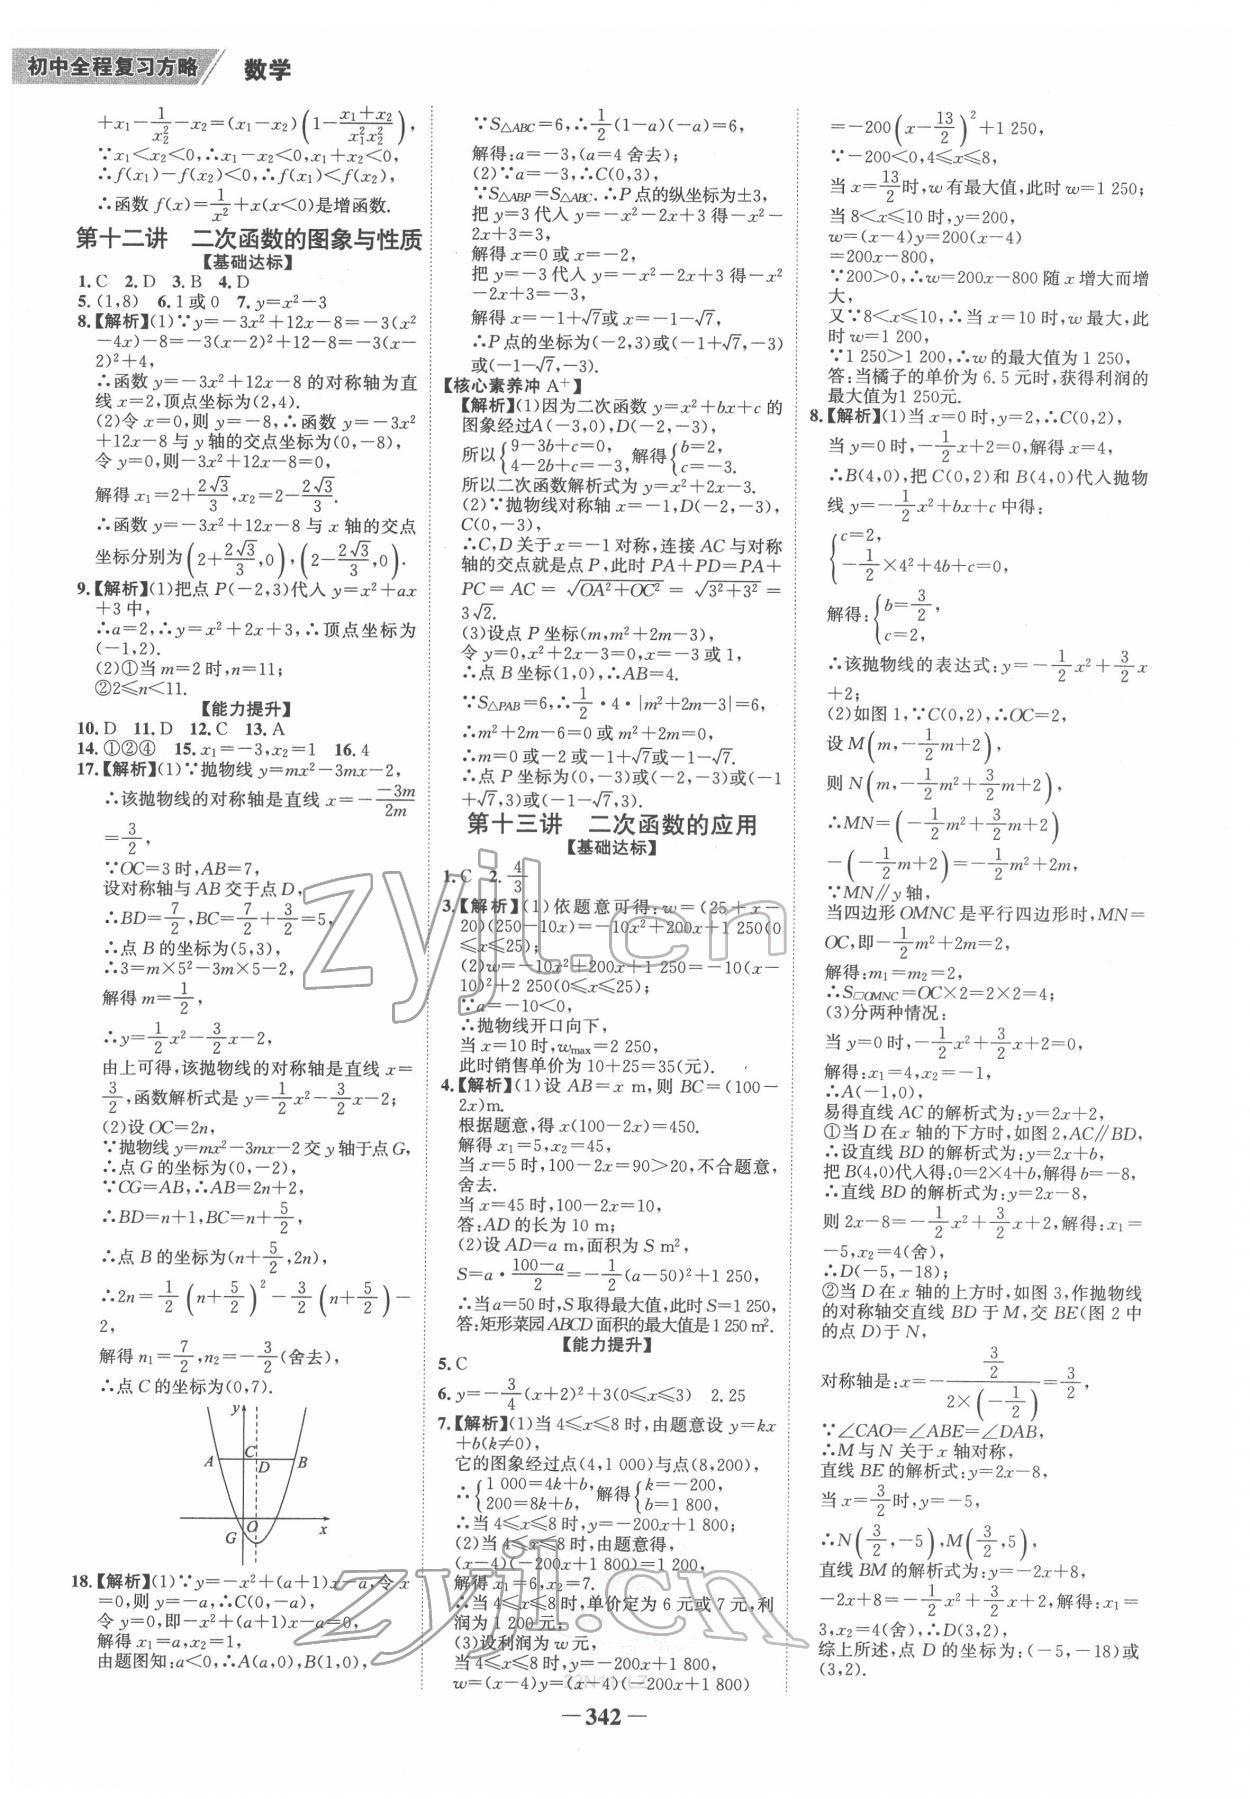 初中全程复习方略 数学
+x₁-1/x₂²-x₂=(x₁-x₂)(1-(x₁+x₂)/(x₁²x₂²)),
∵x₁<x₂<0,∴x₁-x₂<0,x₁+x₂<0,
∴f(x₁)-f(x₂)<0,∴f(x₁)<f(x₂),
∴函数 f(x)=1/x²+x(x<0)是增函数.
第十二讲 二次函数的图象与性质
【基础达标】
1. C 2. D 3. B 4. D
5. (1,8) 6. 1 或 0 7. y=x²-3
8.【解析】(1)∵y=-3x²+12x-8=-3(x²
-4x)-8=-3(x-2)²+12-8=-3(x-
2)²+4,
∴函数 y=-3x²+12x-8 的对称轴为直
线 x=2,顶点坐标为(2,4).
(2)令 x=0,则 y=-8,∴函数 y=-3x²
+12x-8 与 y 轴的交点坐标为(0,-8),
令 y=0,则-3x²+12x-8=0,
解得 x₁=2+2√3/3,x₂=2-2√3/3.
∴函数 y=-3x²+12x-8 与 x 轴的交点
坐标分别为(2+2√3/3,0),(2-2√3/3,0).
9.【解析】(1)把点 P(-2,3)代入 y=x²+ax
+3 中,
∴a=2,∴y=x²+2x+3,∴顶点坐标为
(-1,2).
(2)①当 m=2 时,n=11;
②2≤n<11.
【能力提升】
10. D 11. D 12. C 13. A
14. ①②④ 15. x₁=-3,x₂=1 16. 4
17.【解析】(1)∵抛物线 y=mx²-3mx-2,
∴该抛物线的对称轴是直线 x=-(-3m)/2m
=3/2,
∵OC=3 时,AB=7,
设对称轴与 AB 交于点 D,
∴BD=7/2,BC=7/2+3/2=5,
∴点 B 的坐标为(5,3),
∴3=m×5²-3m×5-2,
解得 m=1/2,
∴y=1/2x²-3/2x-2,
由上可得,该抛物线的对称轴是直线 x=
3/2,函数解析式是 y=1/2x²-3/2x-2;
(2)设 OC=2n,
∵抛物线 y=mx²-3mx-2 交 y 轴于点 G,
∴点 G 的坐标为(0,-2),
∵CG=AB,∴AB=2n+2,
∴BD=n+1,BC=n+5/2,
∴点 B 的坐标为(n+5/2,2n),
∴2n=1/2(n+5/2)²-3/2(n+5/2)-
2,
解得 n₁=7/2,n₂=-3/2(舍去),
∴点 C 的坐标为(0,7).
y
A C D B
G O x
18.【解析】(1)∵y=-x²+(a+1)x-a,令 x
=0,则 y=-a,∴C(0,-a),
令 y=0,即-x²+(a+1)x-a=0,
解得 x₁=a,x₂=1,
由题图知:a<0,∴A(a,0),B(1,0),
∵S△ABC=6,∴1/2(1-a)(-a)=6,
解得:a=-3,(a=4 舍去);
(2)∵a=-3,∴C(0,3),
∵S△ABP=S△ABC.∴P 点的纵坐标为±3,
把 y=3 代入 y=-x²-2x+3 得-x²-
2x+3=3,
解得 x=0 或 x=-2,
把 y=-3 代入 y=-x²-2x+3 得-x²
-2x+3=-3,
解得 x=-1+√7或 x=-1-√7,
∴P 点的坐标为(-2,3)或(-1+√7,-3)
或(-1-√7,-3).
【核心素养冲 A⁺】
【解析】(1)因为二次函数 y=x²+bx+c 的
图象经过A(-3,0),D(-2,-3),
所以{9-3b+c=0, 4-2b+c=-3, 解得{b=2, c=-3.
所以二次函数解析式为 y=x²+2x-3.
(2)∵抛物线对称轴 x=-1,D(-2,-3),
C(0,-3),
∴C,D 关于 x=-1 对称,连接 AC 与对称
轴的交点就是点 P,此时 PA+PD=PA+
PC=AC=√(OA²+OC²)=√(3²+3²)=
3√2.
(3)设点 P 坐标(m,m²+2m-3),
令 y=0,x²+2x-3=0,x=-3 或 1,
∴点 B 坐标(1,0),∴AB=4.
∵S△PAB=6,∴1/2·4·|m²+2m-3|=6,
∴m²+2m-6=0 或 m²+2m=0,
∴m=0 或-2 或-1+√7或-1-√7.
∴点 P 坐标为(0,-3)或(-2,-3)或(-1
+√7,3)或(-1-√7,3).
第十三讲 二次函数的应用
【基础达标】
1. C 2. 4/3
3.【解析】(1)依题意可得:w=(25+x-
20)(250-10x)=-10x²+200x+1 250(0
≤x≤25);
(2)w=-10x²+200x+1 250=-10(x-
10)²+2 250(0≤x≤25);
∵a=-10<0,
∴抛物线开口向下,
当 x=10 时,wmax=2 250,
此时销售单价为 10+25=35(元).
4.【解析】(1)设 AB=x m,则 BC=(100-
2x)m.
根据题意,得 x(100-2x)=450.
解得 x₁=5,x₂=45,
当 x=5 时,100-2x=90>20,不合题意,
舍去.
当 x=45 时,100-2x=10,
答:AD 的长为 10 m;
(2)设 AD=a m,面积为 S m²,
S=a·(100-a)/2=-1/2(a-50)²+1 250,
∴当 a=50 时,S 取得最大值,此时 S=1 250,
答:矩形菜园 ABCD 面积的最大值是 1 250 m².
【能力提升】
5. C
6. y=-3/4(x+2)²+3(0≤x≤3) 2.25
7.【解析】(1)当 4≤x≤8 时,由题意设 y=kx
+b(k≠0),
它的图象经过点(4,1 000)与点(8,200),
∴{1 000=4k+b, 200=8k+b, 解得{k=-200, b=1 800,
∴当 4≤x≤8 时,y=-200x+1 800;
(2)当 4≤x≤8 时,由题意得,
(x-4)(-200x+1 800)=1 200,
解得 x₁=6,x₂=7.
∴当 4≤x≤8 时,单价定为 6 元或 7 元,利
润为 1 200 元;
(3)设利润为 w 元,
当 4≤x≤8 时,y=-200x+1 800,
w=(x-4)y=(x-4)(-200x+1 800)
=-200(x-13/2)²+1 250,
∵-200<0,4≤x≤8,
当 x=13/2时,w 有最大值,此时 w=1 250;
当 8<x≤10 时,y=200,
w=(x-4)y=200(x-4)
=200x-800,
∵200>0,∴w=200x-800 随 x 增大而增
大,
又∵8<x≤10,∴当 x=10 时,w 最大,此
时 w=1 200,
∵1 250>1 200,∴w 的最大值为 1 250,
答:当橘子的单价为 6.5 元时,获得利润的
最大值为1 250元.
8.【解析】(1)当 x=0 时,y=2,∴C(0,2),
当 y=0 时,-1/2x+2=0,解得 x=4,
∴B(4,0),把 C(0,2)和 B(4,0)代入抛物
线 y=-1/2x²+bx+c 中得:
{c=2, -1/2×4²+4b+c=0,
解得:{b=3/2, c=2,
∴该抛物线的表达式:y=-1/2x²+3/2x
+2;
(2)如图 1,∵C(0,2),∴OC=2,
设 M(m,-1/2m+2),
则 N(m,-1/2m²+3/2m+2),
∴MN=(-1/2m²+3/2m+2)
-(-1/2m+2)=-1/2m²+2m,
∵MN∥y 轴,
当四边形 OMNC 是平行四边形时,MN=
OC,即-1/2m²+2m=2,
解得:m₁=m₂=2,
∴S▱OMNC=OC×2=2×2=4;
(3)分两种情况:
当 y=0 时,-1/2x²+3/2x+2=0,
解得:x₁=4,x₂=-1,
∴A(-1,0),
易得直线 AC 的解析式为:y=2x+2,
①当 D 在 x 轴的下方时,如图 2,AC∥BD,
∴设直线 BD 的解析式为:y=2x+b,
把 B(4,0)代入得:0=2×4+b,解得 b=-8,
∴直线 BD 的解析式为:y=2x-8,
则 2x-8=-1/2x²+3/2x+2,解得:x₁=
-5,x₂=4(舍),
∴D(-5,-18);
②当 D 在 x 轴的上方时,如图 3,作抛物线
的对称轴交直线 BD 于 M,交 BE(图 2 中
的点 D)于 N,
对称轴是:x=-(3/2)/(2×(-1/2))=3/2,
∵∠CAO=∠ABE=∠DAB,
∴M 与 N 关于 x 轴对称,
直线 BE 的解析式:y=2x-8,
当 x=3/2时,y=-5,
∴N(3/2,-5),M(3/2,5),
直线 BM 的解析式为:y=-2x+8,
-2x+8=-1/2x²+3/2x+2,解得:x₁=
3,x₂=4(舍),∴D(3,2),
综上所述,点 D 的坐标为:(-5,-18)或
(3,2).
zyjl.cn
zyjl.cn
— 342 —